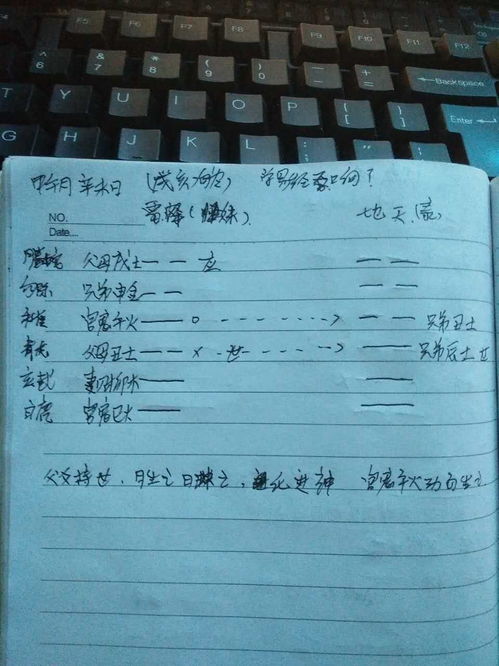 F9 F10 F11 F12
& 7 * 8 ( 9 ) 0 Backspace
T Y U I O P { [ } ]
G H J K L Enter
午月 辛未日 (戌亥旬空) 学易经
NO. 雷泽(归妹) 地天(泰)
Date
父母戌土 应
勾陈 兄弟申金
朱雀 官鬼午火 兄弟丑土
青龙 父母丑土 × 世 兄弟辰土 世
玄武 妻财卯木
白虎 官鬼巳火
父爻持世，月生之日之，化进神 官鬼午火动而生之